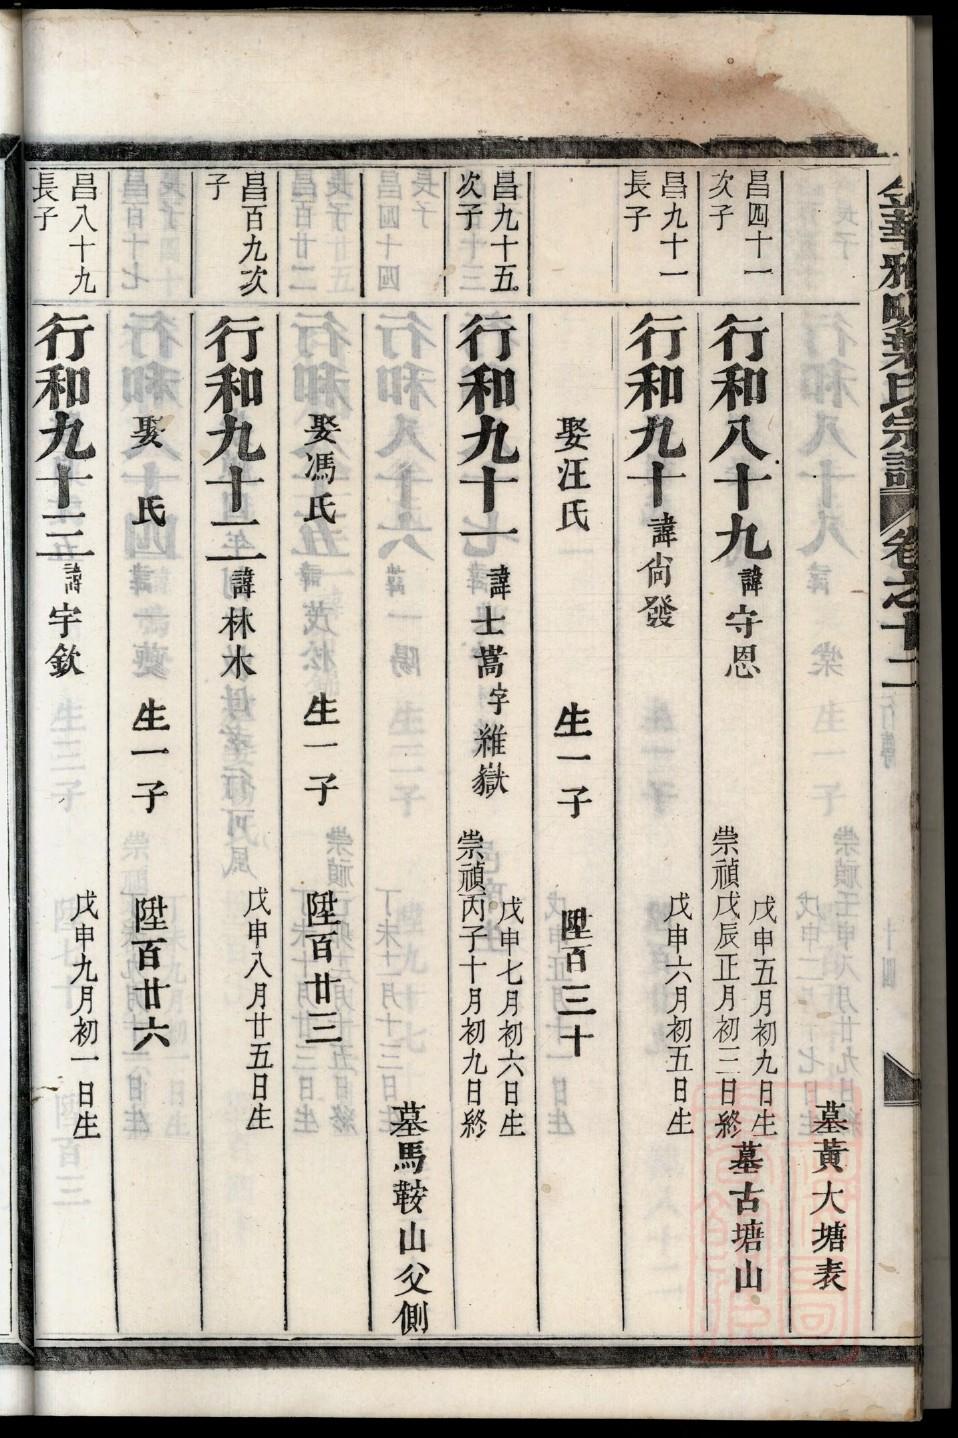 金華雅畈葉氏宗譜 卷之十二 行傳 十四
墓黃大塘表
昌四十一
次子
行和八十九 諱守恩
戊申五月初九日生
崇禎戊辰正月初三日終
墓古塘山
昌九十一
長子
行和九十 諱尙發
戊申六月初五日生
娶汪氏 生一子 陞百三十
昌九十五
次子
行和九十一 諱士嵩字維嶽
戊申七月初六日生
崇禎丙子十月初九日終
墓馬鞍山父側
娶馮氏 生一子 陞百廿三
昌百九次
子
行和九十二 諱林木
戊申八月廿五日生
娶 氏 生一子 陞百廿六
昌八十九
長子
行和九十三 諱宇欽
戊申九月初一日生